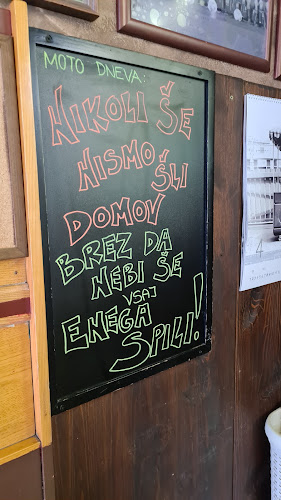 MOTO DNEVA:
NIKOLI ŠE
NISMO
ŠLI
DOMOV
BREZ DA
NEBI ŠE
VSAJ
ENEGA
SPILI!